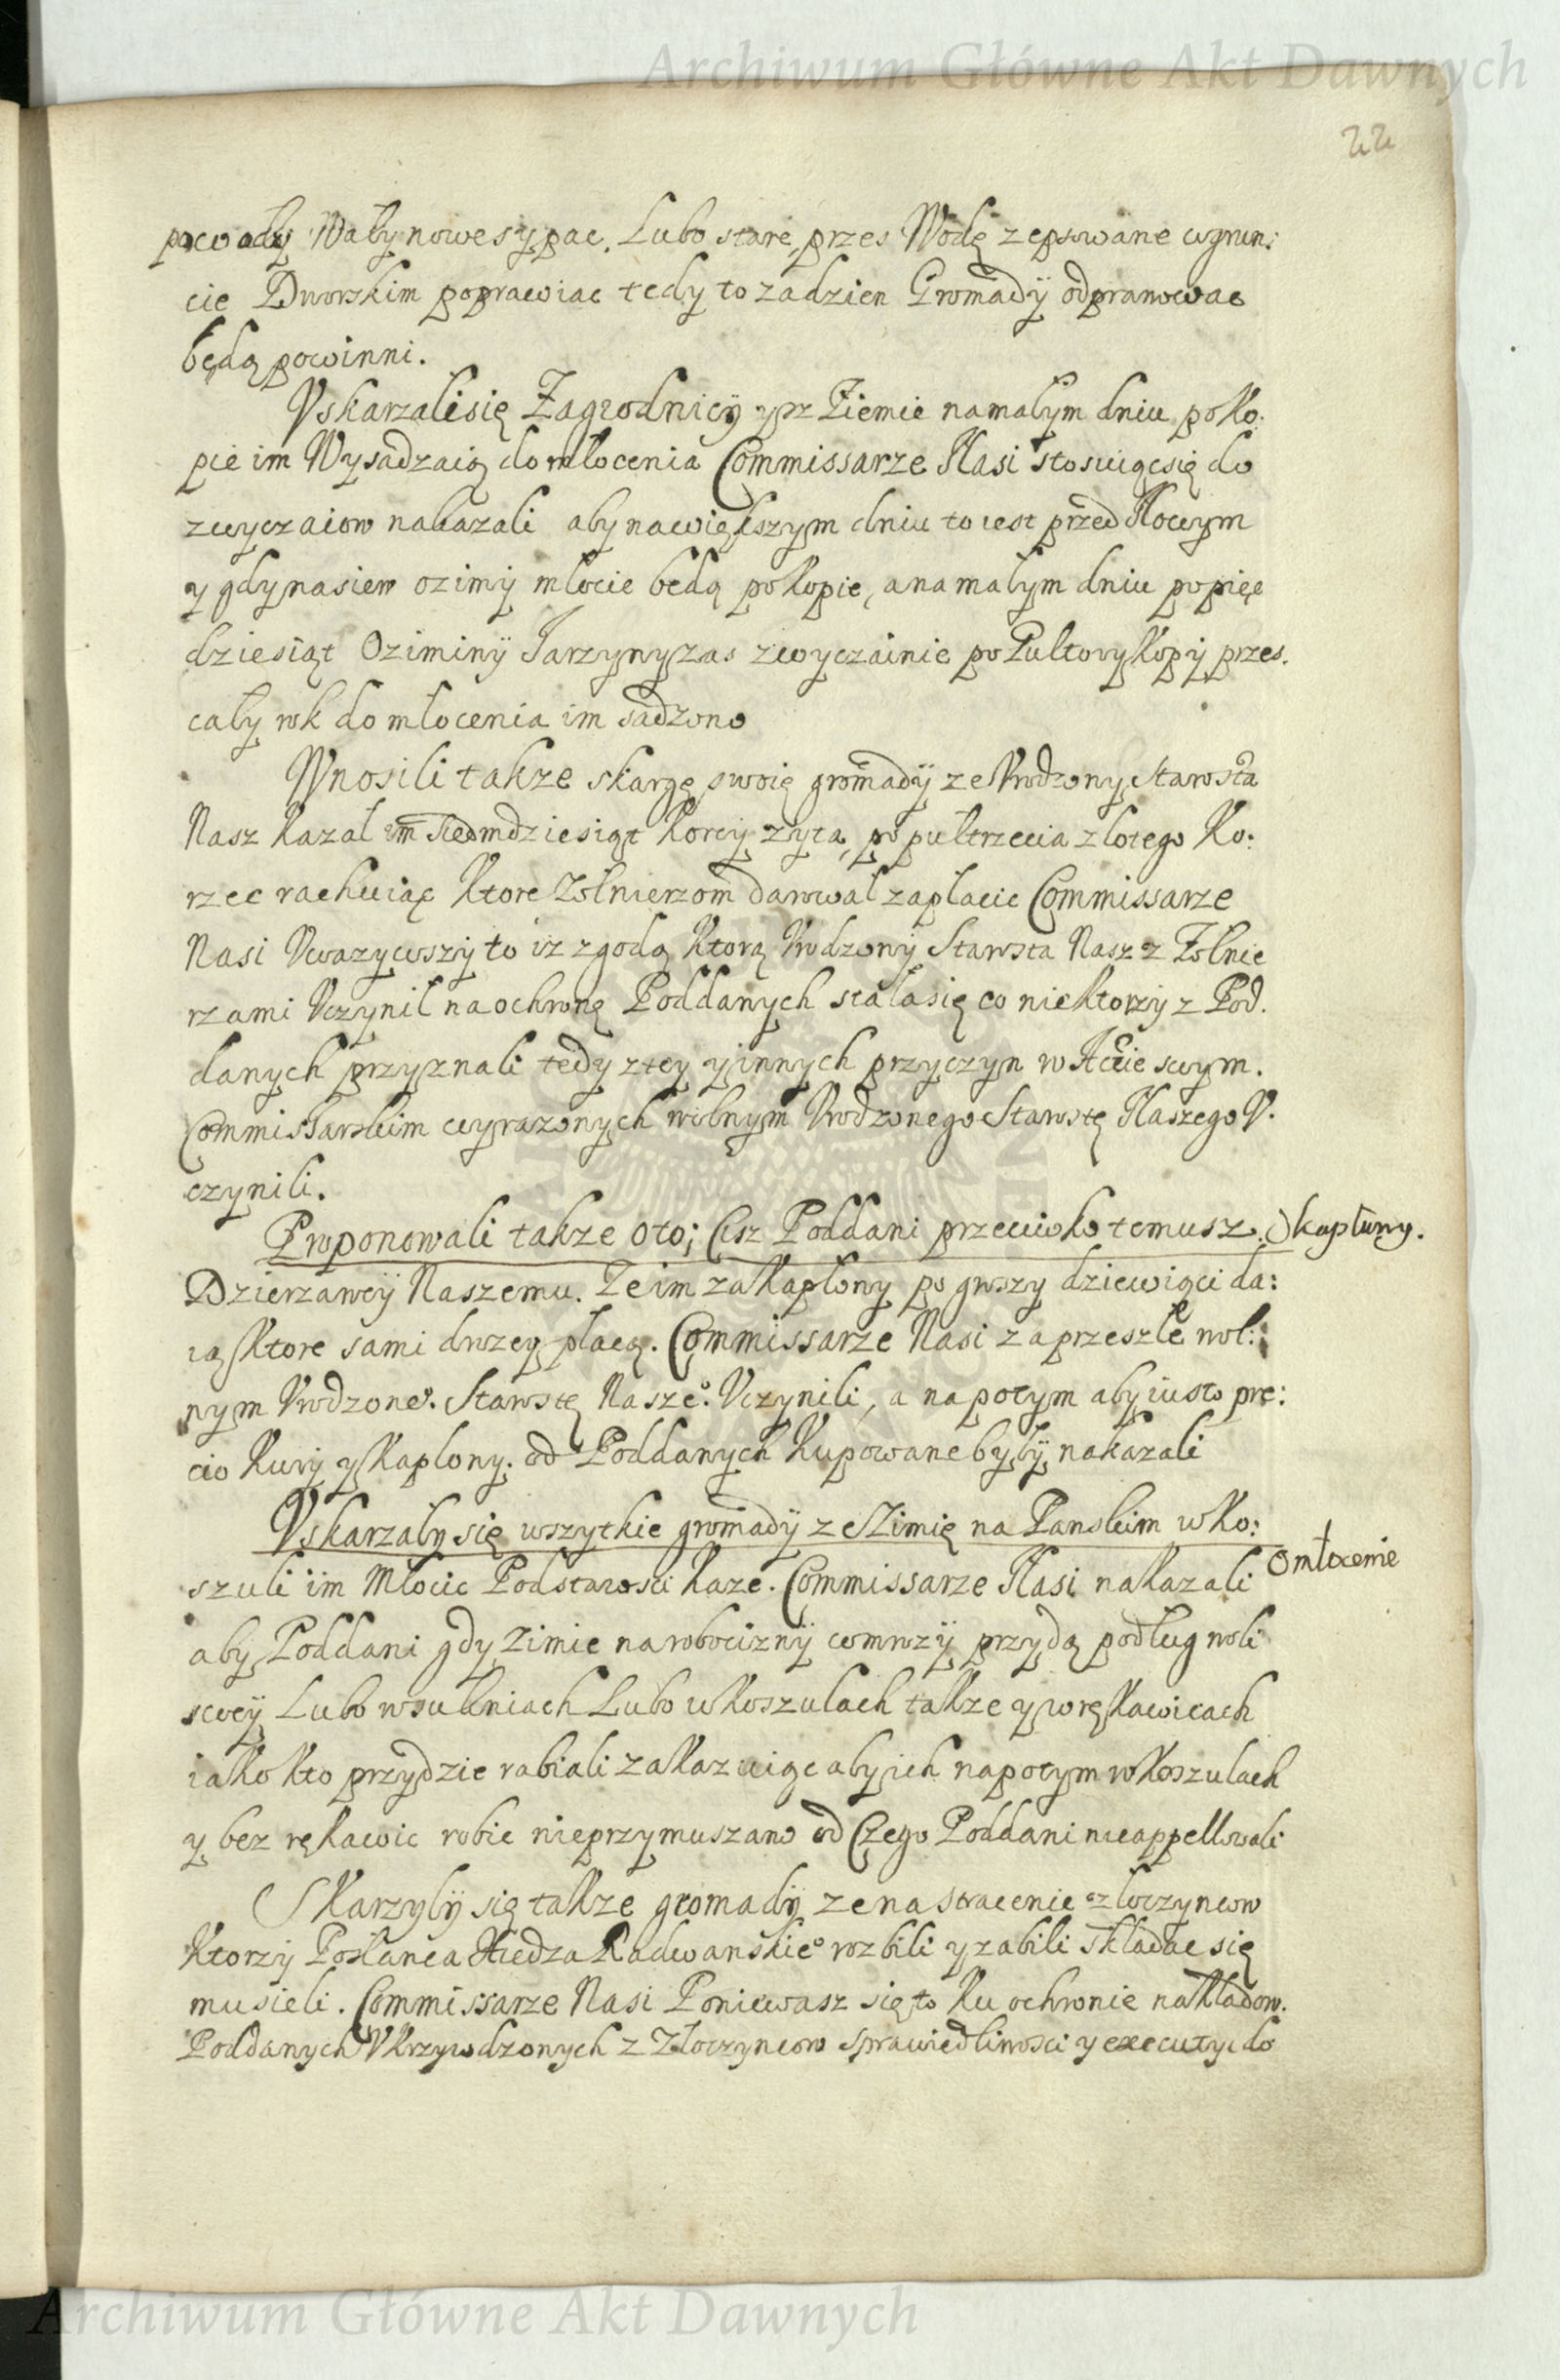 Archiwum Główne Akt Dawnych
22
powody Wały nowe sypac, Lubo stare, przes Wodę zepsowane w grun:
cie Dworskim poprawiac tedy to za dzien Gromady odprawowac
będą powinni.
Vskarzali się Zagrodnicy yz Zimie na małym dniu po Ko:
pie im Wysadzaią do młocenia Commissarze Nasi stosuiąc się do
zwyczaiow nakazali aby nawiększym dniu to iest przed Nowym
y gdy nasiew ozimy młocic będą po Kopie, a na małym dniu po pięc
dziesiąt Oziminy Jarzyny zas zwyczainie po Pułtory Kopy przes.
cały rok do młocenia im sadzono
Wnosili takze skargę swoię gromady ze Vrodzony Starosta
Nasz kazał im siedmdziesiąt korcy zyta, po pułtrzecia złotego Ko:
rzec rachuiąc Ktore Zołnierzom darował zapłacic Commissarze
Nasi Vwazywszy to iz zgodą Ktorą Vrodzony Starosta Nasz z Zołnie
rzami Vczynił na ochronę Poddanych stała się co niektorzy z Pod.
danych przyznali tedy z tey y innych przyczyn w Akcie swym.
Commissarskim wyrazonych wolnym Vrodzonego Starostę Naszego V.
czynili.
Proponowali takze o to; Ciz Poddani przeciwko temusz.
Okapłuny.
Dzierzawcy Naszemu. Ze im za Kapłony po groszy dziewiąci da:
ią Ktore sami drozey płacą. Commissarze Nasi za przeszłe wol:
nym Vrodzone°. Starostę Nasze°. Vczynili, a na potym aby iusto pre:
cio Kury y Kapłony. od Poddanych Kupowane były nakazali
Vskarzały się wszytkie gromady ze Zimię na Panskim w Ko:
Omłocenie
szuli im Młocic Podstarosci Kaze. Commissarze Nasi nakazali
aby Poddani gdy Zimie na robocizny w mrozy przydą podług woli
swey Lubo w sukniach Lubo w Koszulach takze y w rękawicach
iako kto przydzie rabiali zakazuiąc aby ich na potym w Koszulach
y bez rękawic robic nie przymuszano od Czego Poddani nie appellowali
Skarzyły się takze gromady ze na stracenie złoczyncow
Ktorzy Posłanca Xiedza Radwanskie° rozbili y zabili składac się
musieli. Commissarze Nasi Poniewasz się to Ku ochronie nakładow.
Poddanych Vkrzywdzonych z Złoczyncow sprawiedliwosci y executyi do
Archiwum Główne Akt Dawnych